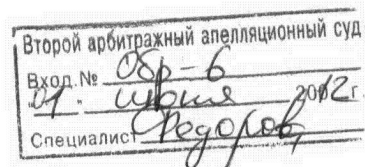 Второй арбитражный апелляционный суд
Вход. № Обр-6
"01" июня 2012 г.
Специалист Федорова